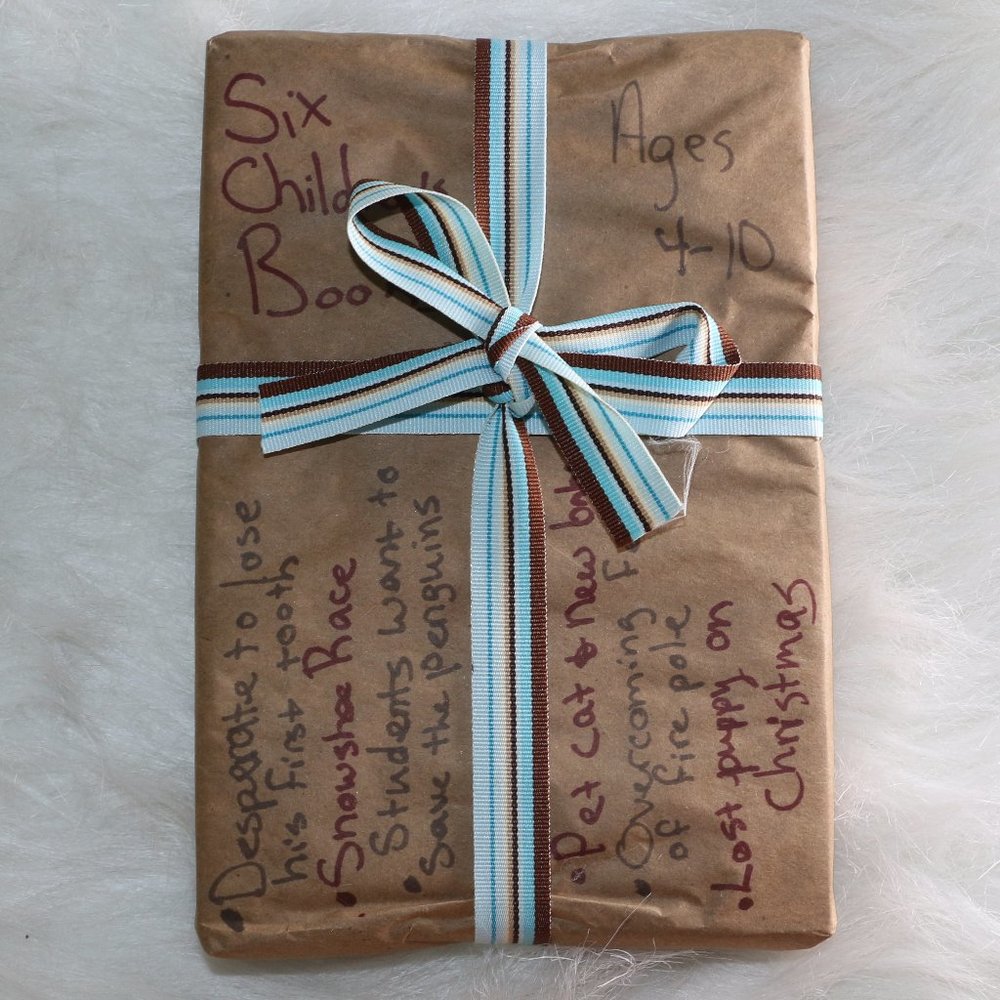 Six
Children's
Books
Ages
4-10
• Desperate to lose
his first tooth
• Snowshoe Race
• Students want to
save the penguins
• Pet cat & new baby
• Overcoming
of fire pole
• Lost puppy on
Christmas